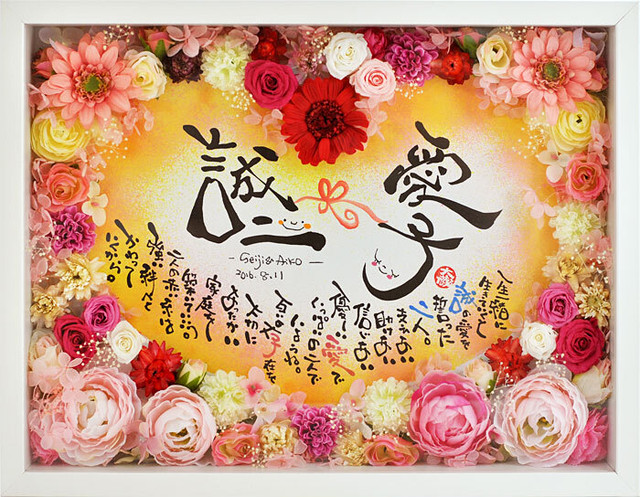 愛子
誠二
- Seiji & Aiko -
2016.8.11
一生一緒に
生きていこうと
誠の愛を
誓った
二人。
支え合い
助け合い
信じ合い
優しい愛で
いっぱいの二人で
いようね。
互いの
大切に
あたたかい
家庭を
築こう。
二人の赤い糸は
強い絆へと
かわって
いくから。